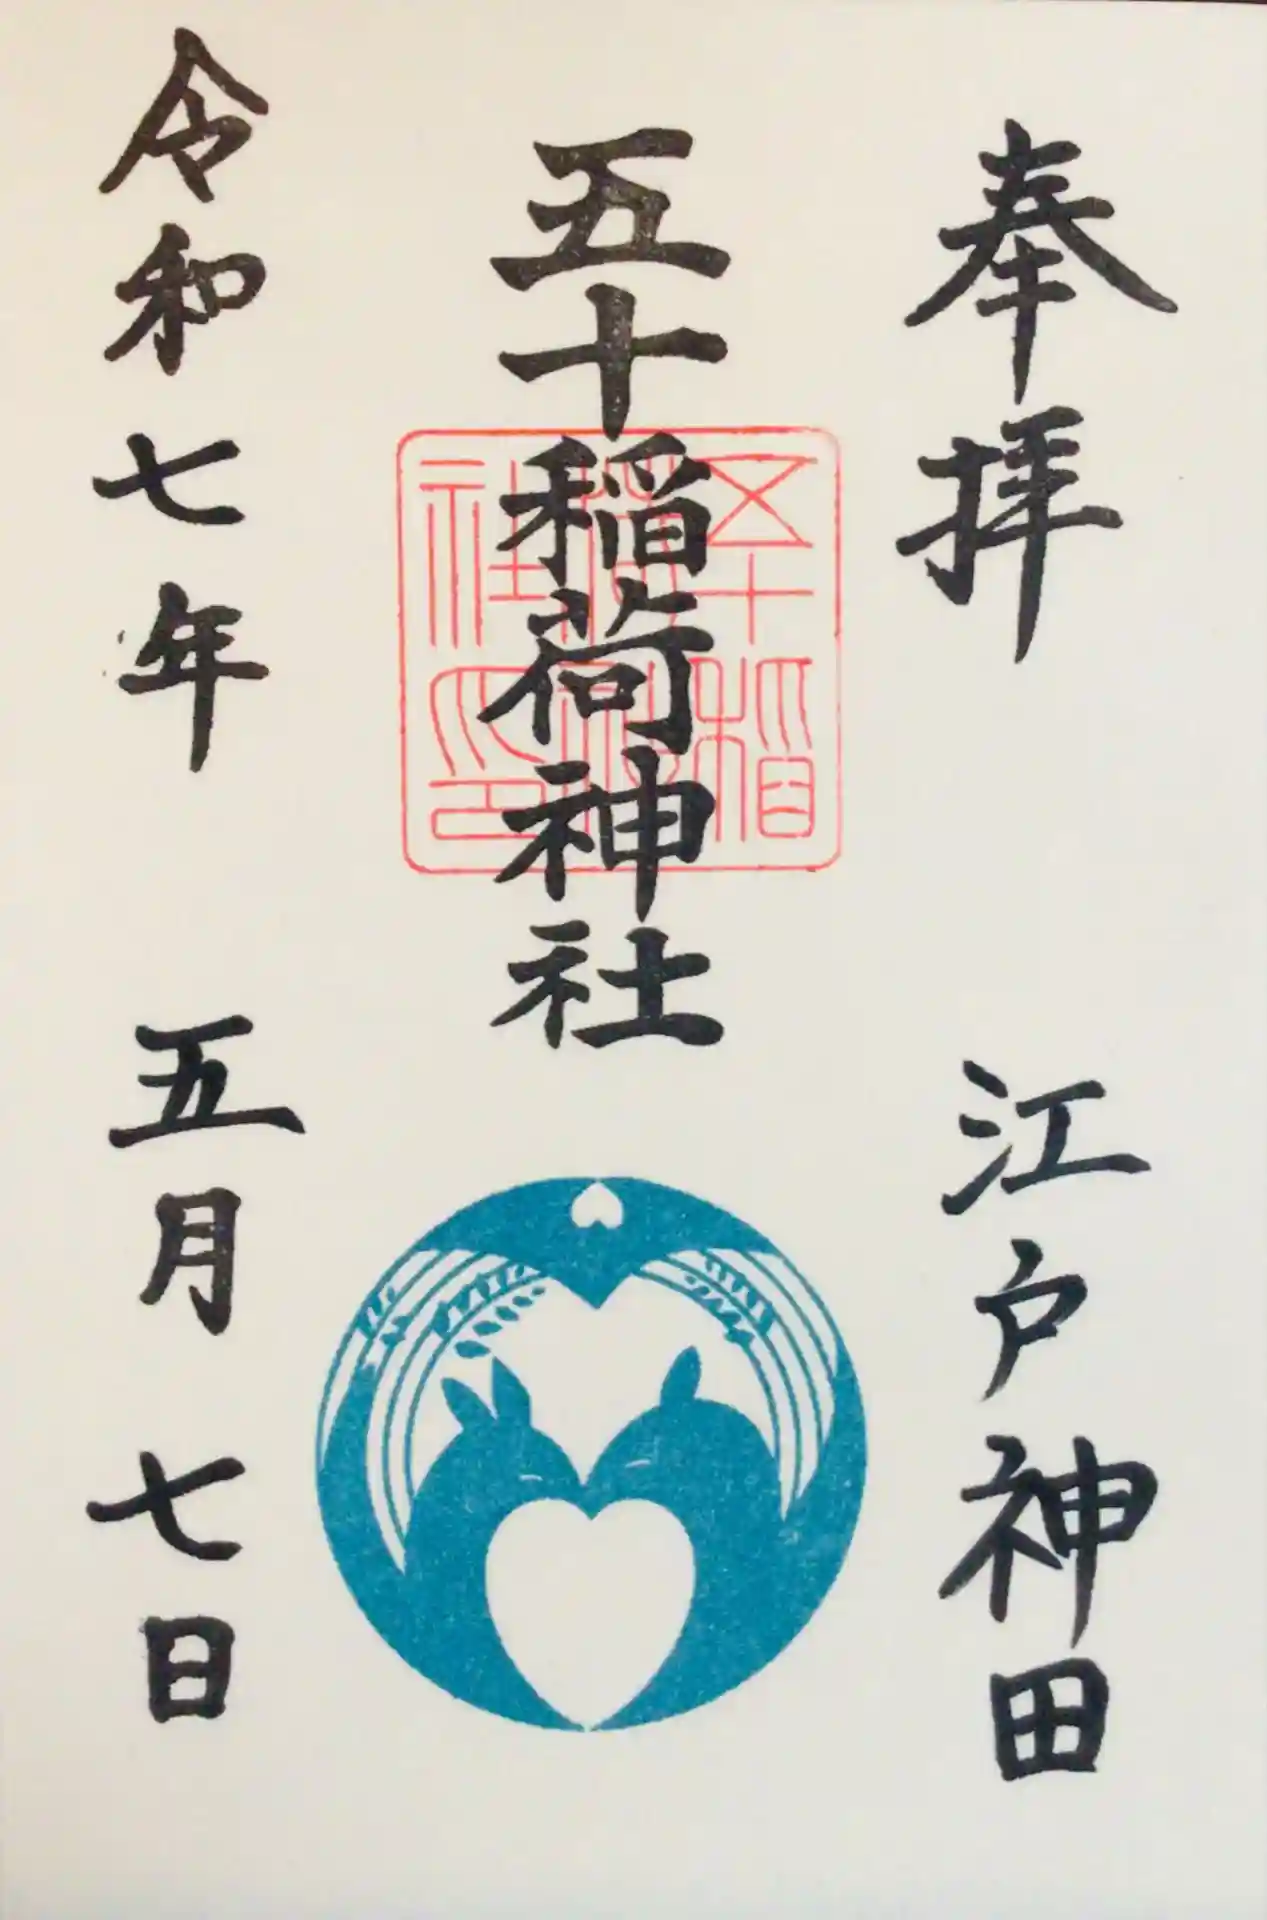 奉拝
江戸神田
五十稲荷神社
五十稲荷神社印
令和七年
五月
七日